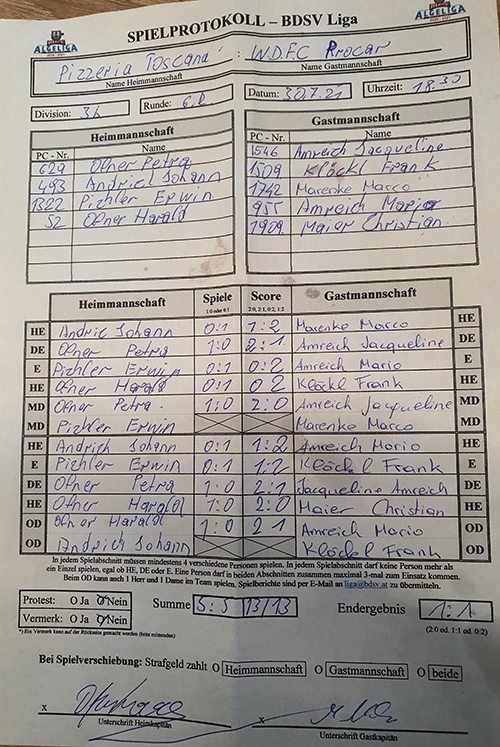 ALGELIGA SPIELPROTOKOLL – BDSV Liga ALGELIGA
Pizzeria Toscana : W.D.F.C Procar
Name Heimmannschaft Name Gastmannschaft
Division: 3b Runde: 6.R. Datum: 30.7.21 Uhrzeit: 18.30
Heimmannschaft Gastmannschaft
PC - Nr. Name PC - Nr. Name
629 Ofner Petra 1546 Amreich Jacqueline
493 Andrich Johann 1509 Klöckl Frank
1322 Pichler Erwin 1742 Marenke Marco
52 Ofner Harald 955 Amreich Mario
1909 Maier Christian
Heimmannschaft Spiele Score Gastmannschaft
1:0 oder 0:1 2:0, 2:1, 0:2, 1:2
HE Andrich Johann 0:1 1:2 Marenke Marco HE
DE Ofner Petra 1:0 2:1 Amreich Jacqueline DE
E Pichler Erwin 0:1 0:2 Amreich Mario E
HE Ofner Harald 0:1 0 2 Klöckl Frank HE
MD Ofner Petra 1:0 2:0 Amreich Jacqueline MD
MD Pichler Erwin Marenke Marco MD
HE Andrich Johann 0:1 1:2 Amreich Mario HE
E Pichler Erwin 0:1 1:2 Klöckl Frank E
DE Ofner Petra 1:0 2:1 Jacqueline Amreich DE
HE Ofner Harald 1:0 2:0 Maier Christian HE
OD Ofner Harald 1:0 2 1 Amreich Mario OD
OD Andrich Johann Klöckl Frank OD
In jedem Spielabschnitt müssen mindestens 4 verschiedene Personen spielen. In jedem Spielabschnitt darf keine Person mehr als
ein Einzel spielen, egal ob HE, DE oder E. Eine Person darf in beiden Abschnitten zusammen maximal 3-mal zum Einsatz kommen.
Beim OD kann auch 1 Herr und 1 Dame im Team spielen. Spielberichte sind per E-Mail an liga@bdsv.at zu übermitteln.
Protest: O Ja O Nein Summe 5:5 13/13 Endergebnis 1:1
Vermerk: O Ja O Nein (2:0 od. 1:1 od. 0:2)
*) Ein Vermerk kann auf der Rückseite gemacht werden (bitte mitsenden)
Bei Spielverschiebung: Strafgeld zahlt O Heimmannschaft O Gastmannschaft O beide
x x
Unterschrift Heimkapitän Unterschrift Gastkapitän